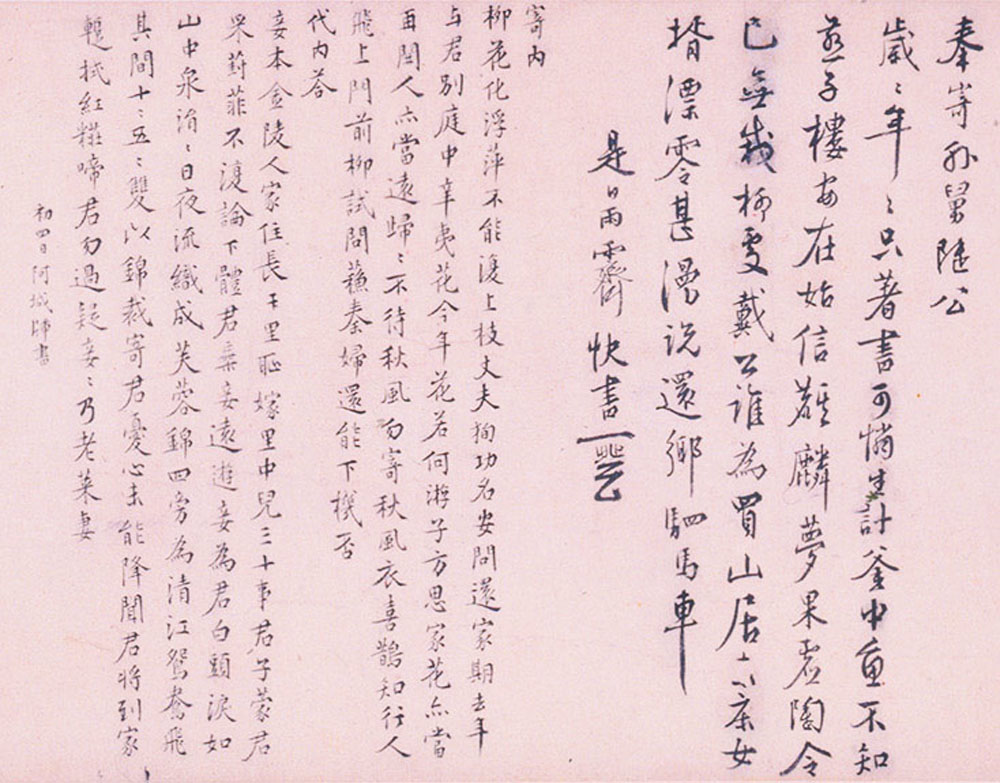 奉寄孙舅隨公
歲〻年〻只著書可憐生計釜中魚不知
燕子樓安在始信麒麟夢果虛陶令
已無栽柳處戴公誰為買山居女
壻漂零甚漫說還鄉駟馬車
是日雨霽快書一
寄內
柳花化浮萍不能復上枝丈夫徇功名安問還家期去年
与君別庭中辛夷花今年花若何游子方思家花亦當
再開人亦當遠歸〻不待秋風勿寄秋風衣喜鵲知行人
飛上門前柳試問蘇秦婦還能下機否
代內答
妾本金陵人家住長干里恥嫁里中兒三十事君子蒙君
采葑菲不復論下體君棄妾遠遊妾為君白頭淚如
山中泉涓〻日夜流織成芙蓉錦四旁為清江鴛鴦飛
其間十〻五〻雙以錦裁寄君憂心未能降聞君將到家
輙拭紅糚啼君勿過疑妾〻乃老萊妻
初四日阿城歸書